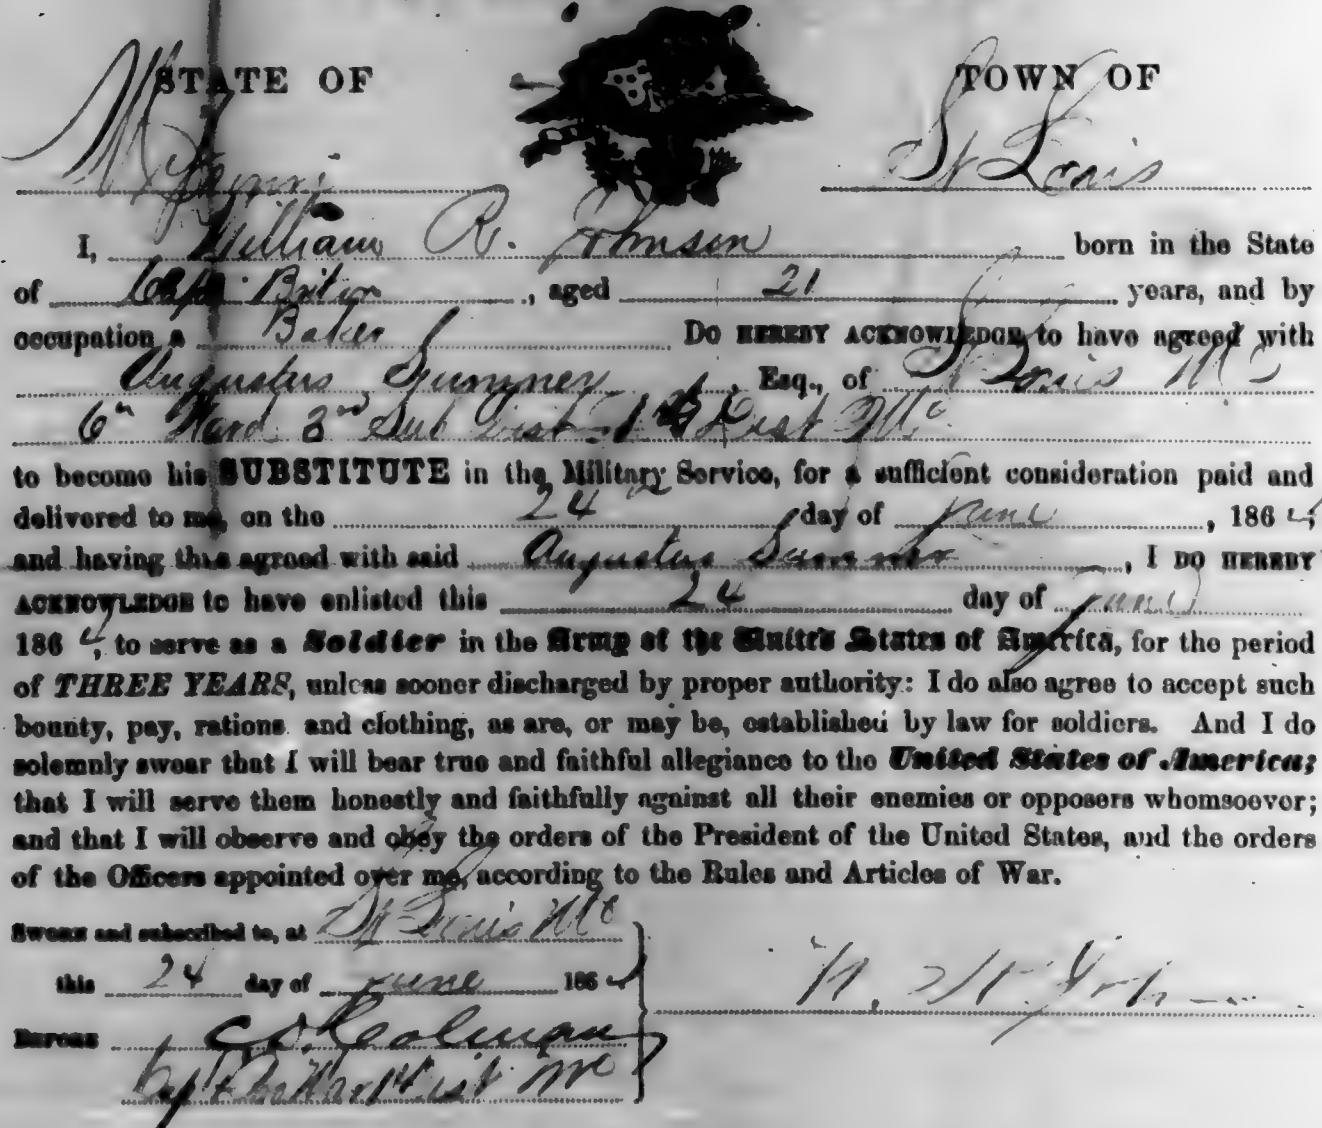 STATE OF TOWN OF
Missouri St Louis
I, William R. Johnson born in the State
of Cape Briton, aged 21 years, and by
occupation a Baker DO HEREBY ACKNOWLEDGE to have agreed with
Augustus Sumner, Esq., of St Louis Mo
6th Ward 3rd Sub Dist 1st Dist Mo
to become his SUBSTITUTE in the Military Service, for a sufficient consideration paid and
delivered to me, on the 24th day of June, 1864,
and having thus agreed with said Augustus Sumner, I DO HEREBY
ACKNOWLEDGE to have enlisted this 24 day of June
1864, to serve as a Soldier in the Army of the United States of America, for the period
of THREE YEARS, unless sooner discharged by proper authority: I do also agree to accept such
bounty, pay, rations and clothing, as are, or may be, established by law for soldiers. And I do
solemnly swear that I will bear true and faithful allegiance to the United States of America;
that I will serve them honestly and faithfully against all their enemies or opposers whomsoever;
and that I will observe and obey the orders of the President of the United States, and the orders
of the Officers appointed over me, according to the Rules and Articles of War.
Sworn and subscribed to, at St Louis Mo
this 24 day of June 1864
BEFORE C. D. Colman
Capt Dist Mo